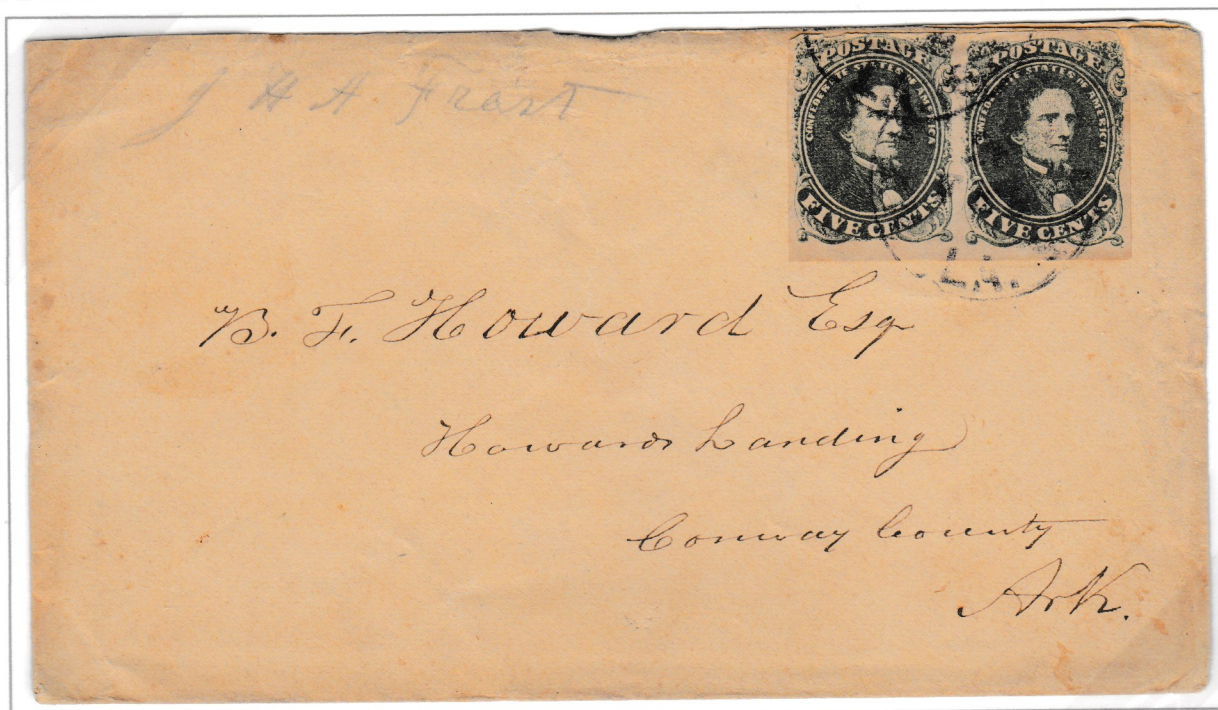 J H A Frast
POSTAGE
CONFEDERATE STATES OF AMERICA
FIVE CENTS
POSTAGE
CONFEDERATE STATES OF AMERICA
FIVE CENTS
LA.
B. F. Howard Esq
Howards Landing
Conway County
Ark.